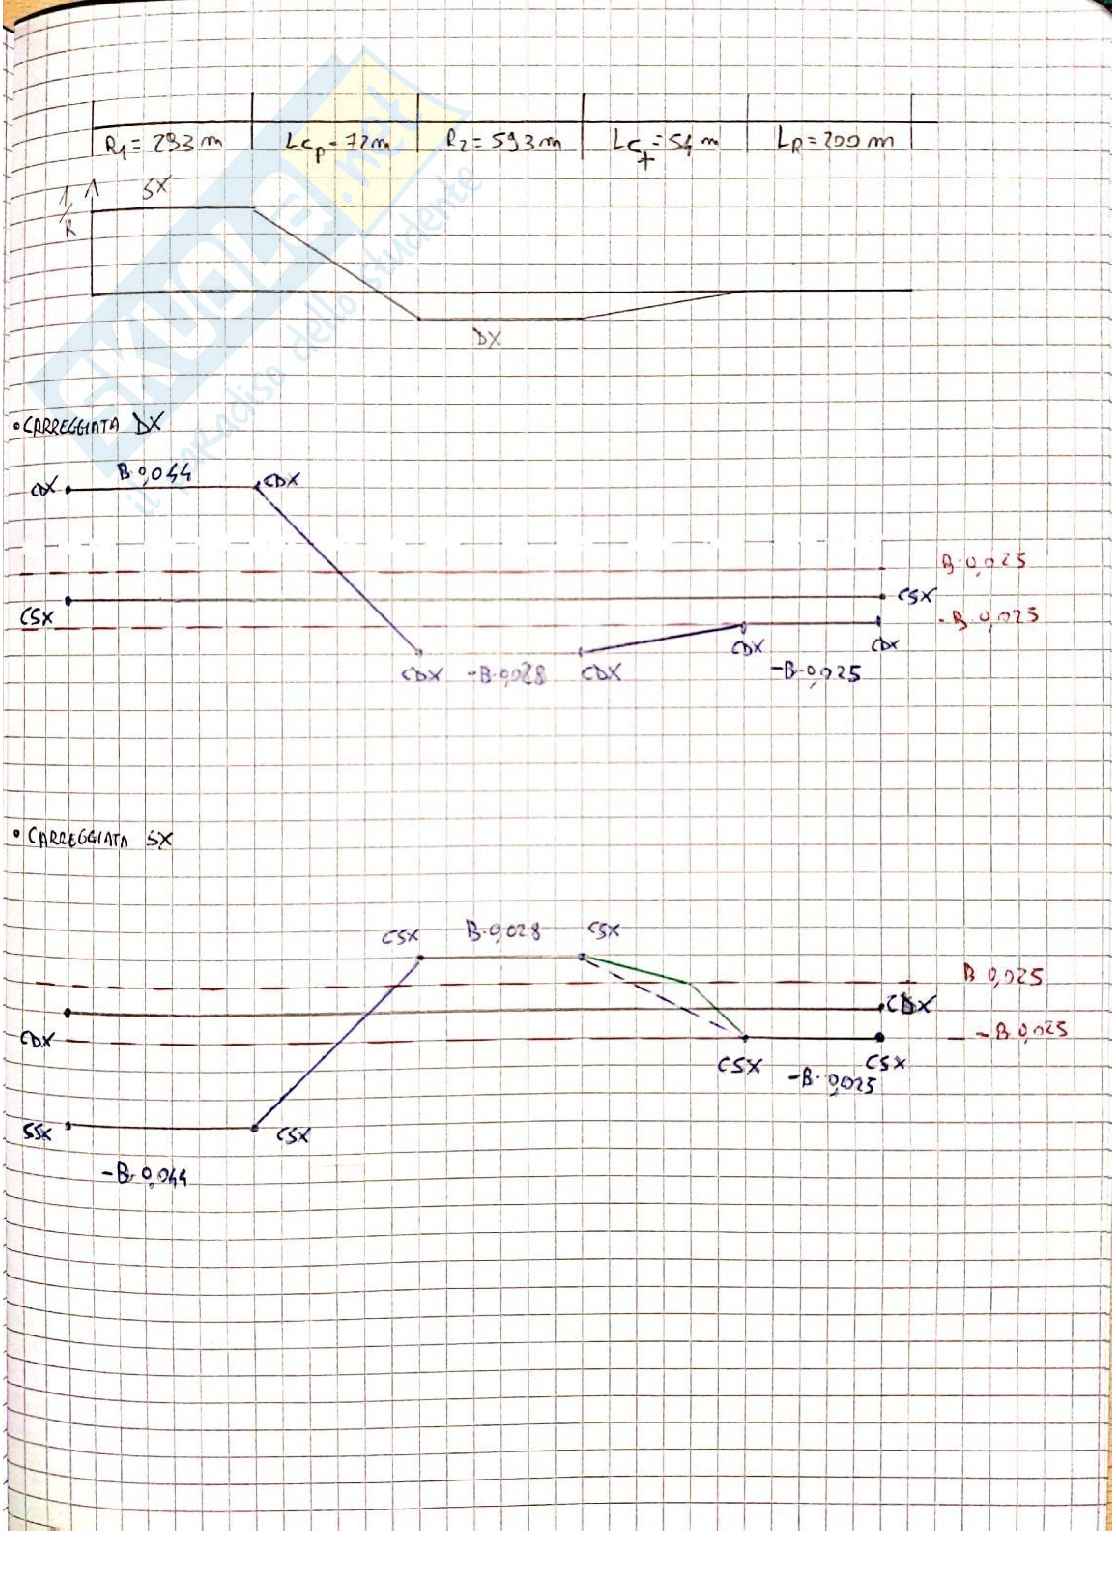 R1 = 293 m LCp = 72 m R2 = 593 m LCt = 54 m LR = 200 m
1/R SX
DX
• CARREGGIATA DX
CDX B·0,044 CDX
B·0,025
CSX CSX
-B·0,025
CDX -B·0,028 CDX CDX -B·0,025 CDX
• CARREGGIATA SX
CSX B·0,028 CSX
B·0,025
CDX
CDX -B·0,025
CSX -B·0,025 CSX
SSX CSX
-B·0,044
SKUOLA.net
il paradiso dello studente